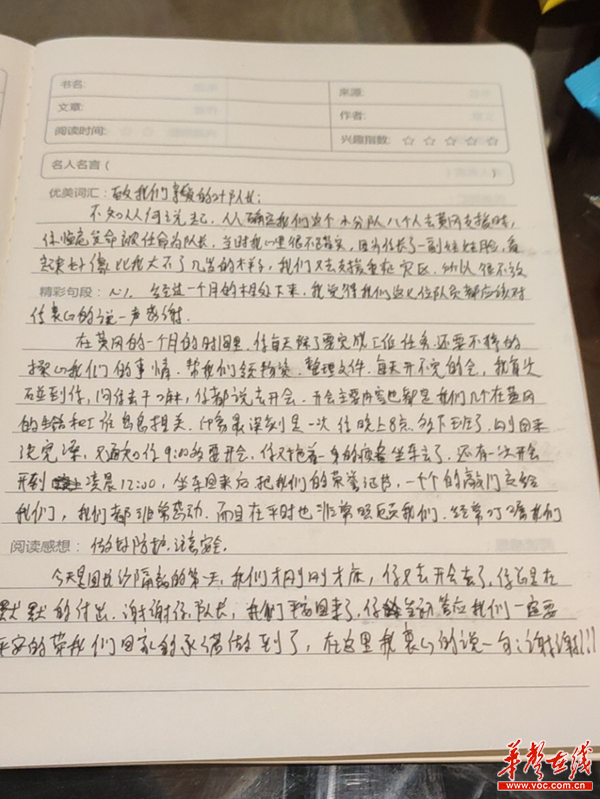 书名:
来源:
文章:
作者:
阅读时间:
兴趣指数: ☆ ☆ ☆ ☆ ☆
名人名言 (
)
优美词汇: 致我们亲爱的叶队长:
不知从何说起,从确定我们这个小分队八个人去黄冈支援时,
你临危受命被任命为队长,当时我心里很不踏实,因为你长了一副娃娃脸,看
起来好像比我大不了几岁的样子,我们又去支援重症灾区,所以很不放
精彩句段: 心。经过一个月的相处下来,我觉得我们这七位队员都应该对
你衷心的说一声感谢。
在黄冈的一个月的时间里,你每天除了要完成工作任务还要不停的
操心我们的事情,帮我们领物资,整理文件,每天开不完的会,我每次
碰到你,问你去干嘛,你都说去开会。开会主要内容也都是我们几个在黄冈
的生活和工作息息相关。印象最深刻是一次你晚上8点多下班了,刚回来
洗完澡,又通知你9:00多要开会,你又拖着一身的疲惫坐车去了,还有一次开会
开到凌晨12:00,坐车回来后把我们的荣誉证书,一个个的敲门交给
我们,我们都非常感动。而且在平时也非常照顾我们,经常叮嘱我们
阅读感想: 做好防护,注意安全。
今天是回长沙隔离的第一天,我们才刚刚才起床,你又去开会去了,你总是在
默默的付出,谢谢你,队长,我们平安回来了,你答应我们一定要
平安的带我们回家的承诺做到了,在这里我衷心的说一句:谢谢!!!
华声在线
www.voc.com.cn